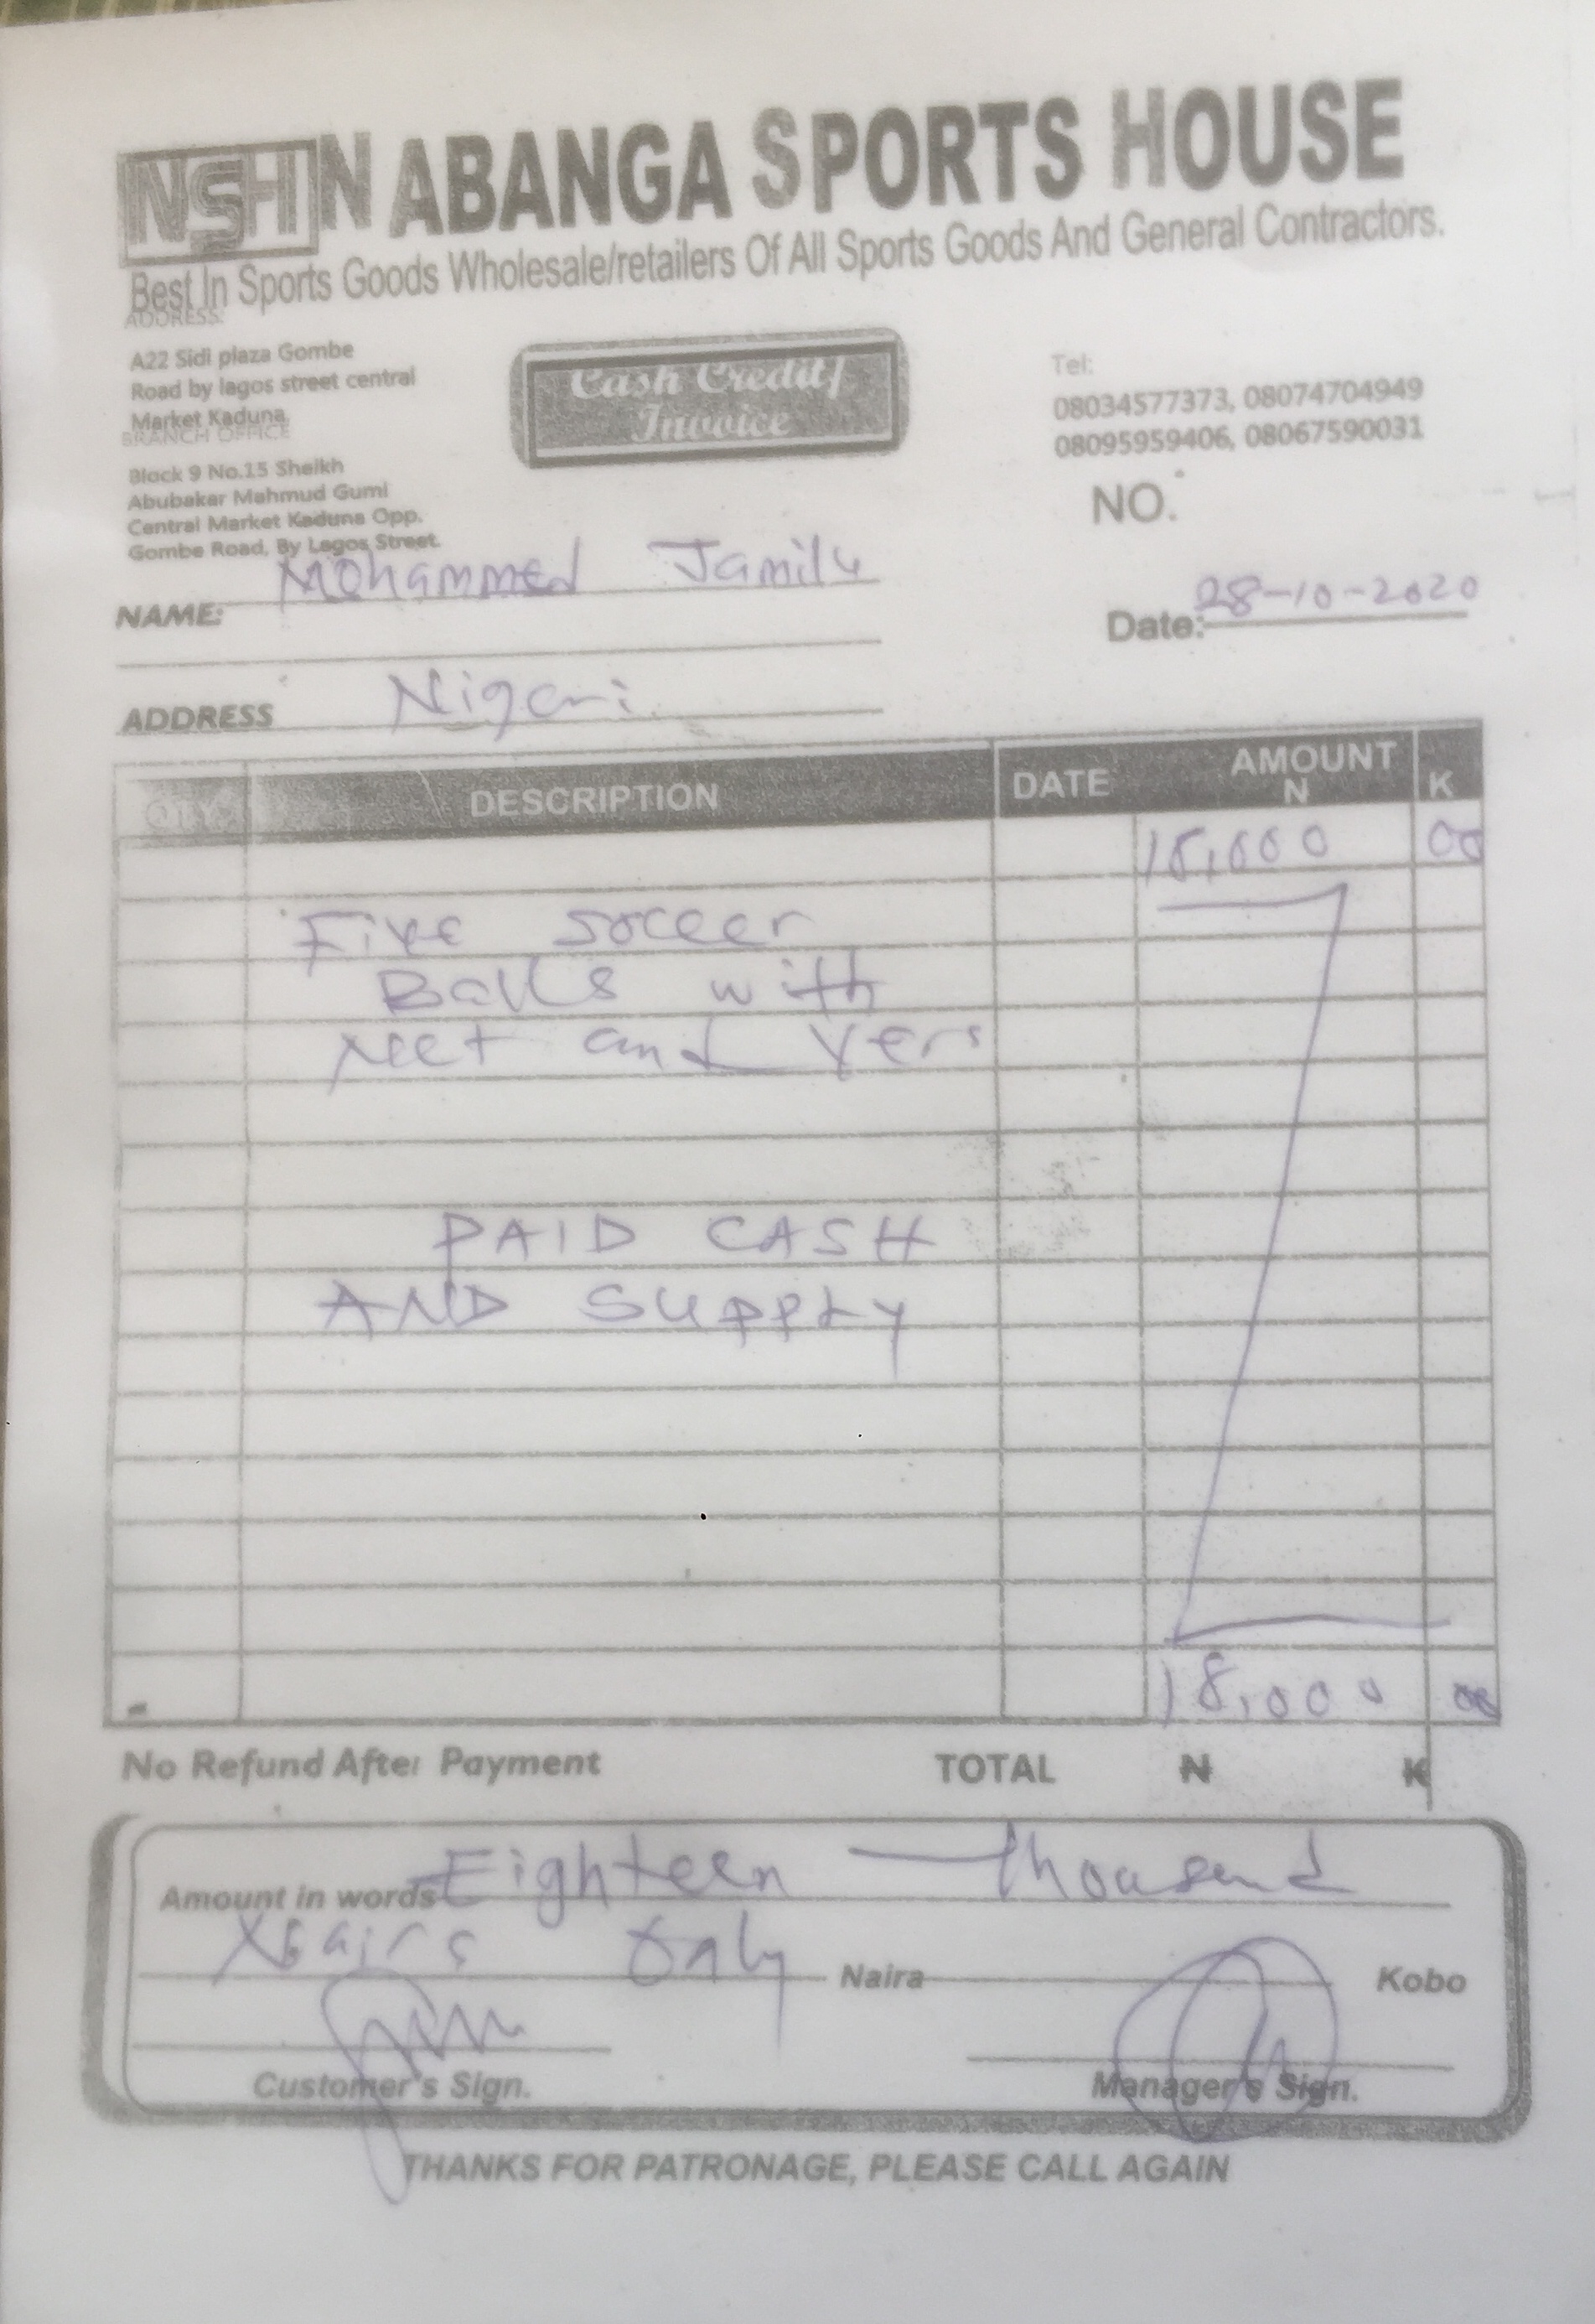 NSH NABANGA SPORTS HOUSE
Best In Sports Goods Wholesale/retailers Of All Sports Goods And General Contractors.
ADDRESS:
A22 Sidi plaza Gombe
Road by lagos street central
Market Kaduna
BRANCH OFFICE
Block 9 No.15 Sheikh
Abubakar Mahmud Gumi
Central Market Kaduna Opp.
Gombe Road, By Lagos Street.
Cash Credit/
Invoice
Tel:
08034577373, 08074704949
08095959406, 08067590031
NO.
NAME: Mohammed Jamilu
Date: 28-10-2020
ADDRESS
QTY DESCRIPTION DATE AMOUNT
N K
18,000 00
Five soccer
Balls with
Net and
PAID CASH
AND SUPPLY
18,000 00
No Refund After Payment TOTAL ₦ K
Amount in words Eighteen Thousand
Only Naira Kobo
Customer's Sign. Manager's Sign.
THANKS FOR PATRONAGE, PLEASE CALL AGAIN